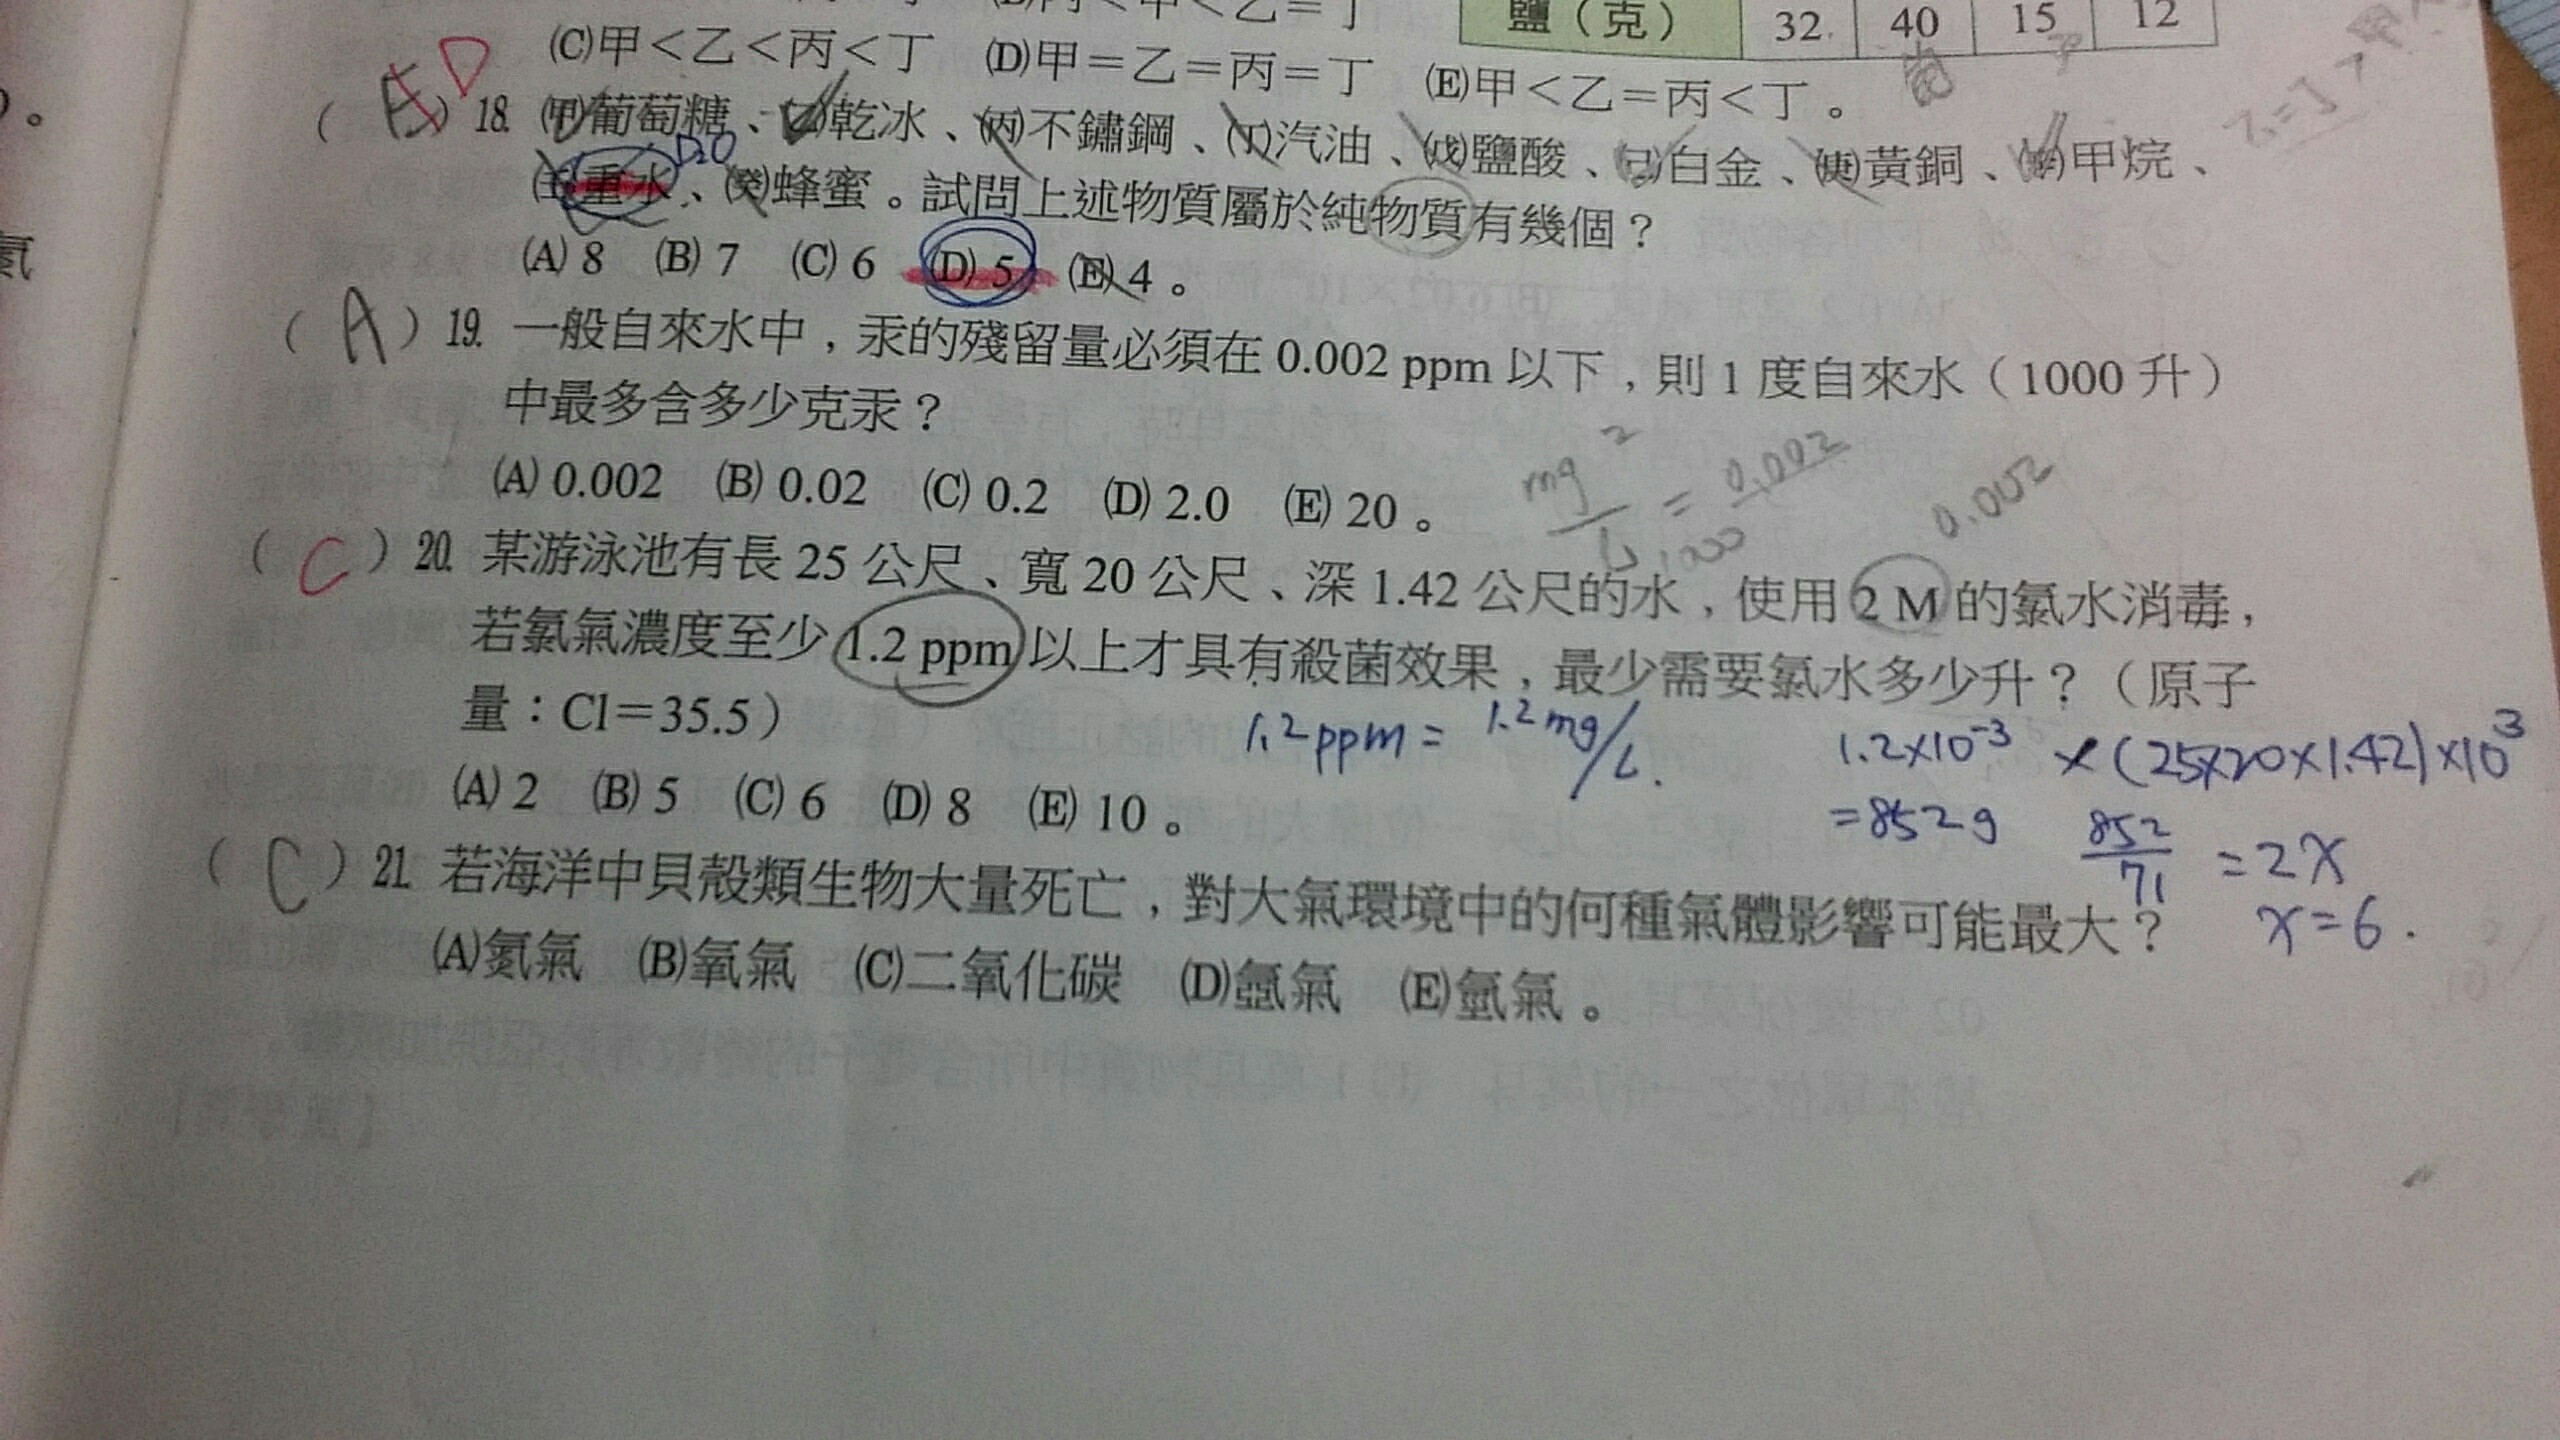 (C)甲＜乙＜丙＜丁 (D)甲＝乙＝丙＝丁 (E)甲＜乙＝丙＜丁。
鹽（克） 32 40 15 12
（A D）18. (甲)葡萄糖、(乙)乾冰、(丙)不鏽鋼、(丁)汽油、(戊)鹽酸、(己)白金、(庚)黃銅、(辛)甲烷、
D2O
(壬)重水、(癸)蜂蜜。試問上述物質屬於純物質有幾個？
(A) 8 (B) 7 (C) 6 (D) 5 (E) 4。
（A）19. 一般自來水中，汞的殘留量必須在 0.002 ppm 以下，則 1 度自來水（1000 升）
中最多含多少克汞？
(A) 0.002 (B) 0.02 (C) 0.2 (D) 2.0 (E) 20。
mg/L = 0.002
2
1000
0.002
（C）20. 某游泳池有長 25 公尺、寬 20 公尺、深 1.42 公尺的水，使用 2 M 的氯水消毒，
若氯氣濃度至少 1.2 ppm 以上才具有殺菌效果，最少需要氯水多少升？（原子
量：Cl＝35.5）
1.2 ppm = 1.2 mg/L.
1.2×10⁻³ ×(25×20×1.42)×10³
(A) 2 (B) 5 (C) 6 (D) 8 (E) 10。
=852g 852/71 =2x
x=6.
（C）21. 若海洋中貝殼類生物大量死亡，對大氣環境中的何種氣體影響可能最大？
(A)氮氣 (B)氧氣 (C)二氧化碳 (D)氬氣 (E)氫氣。